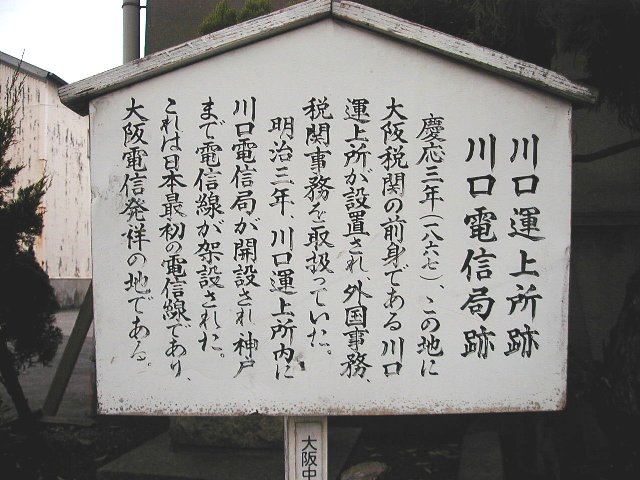 川口運上所跡
川口電信局跡
慶応三年(一八六七)、この地に
大阪税関の前身である川口
運上所が設置され、外国事務、
税関事務を取扱っていた。
明治三年、川口運上所内に
川口電信局が開設され神戸
まで電信線が架設された。
これは日本最初の電信線であり、
大阪電信発祥の地である。
大阪中